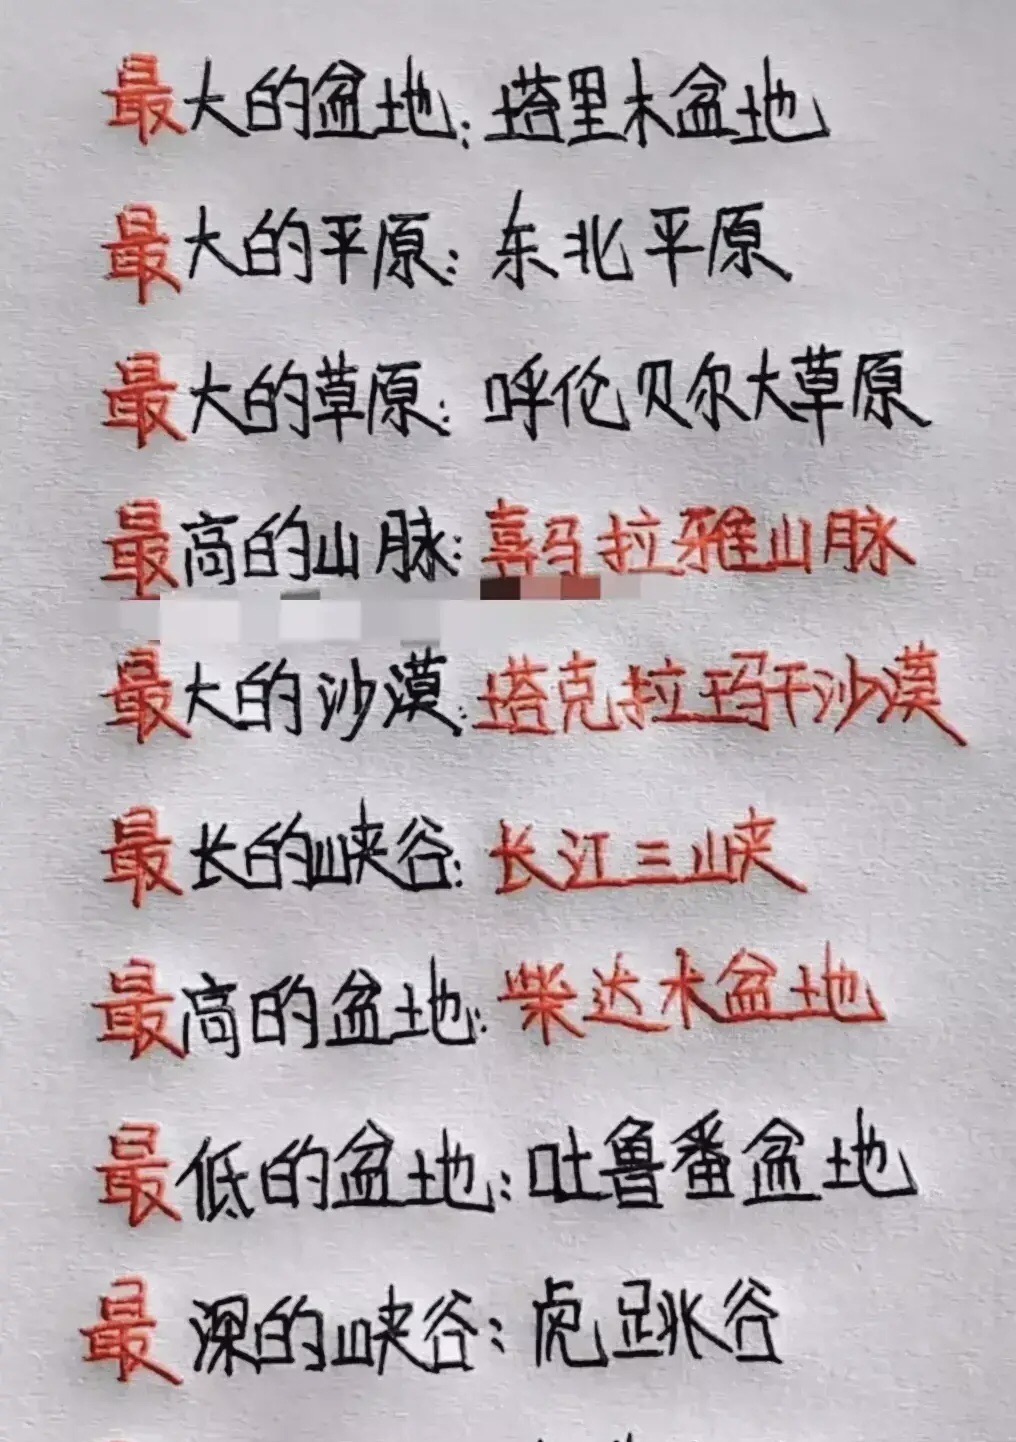 最大的盆地：塔里木盆地
最大的平原：东北平原
最大的草原：呼伦贝尔大草原
最高的山脉：喜马拉雅山脉
最大的沙漠：塔克拉玛干沙漠
最长的峡谷：长江三峡
最高的盆地：柴达木盆地
最低的盆地：吐鲁番盆地
最深的峡谷：虎跳谷